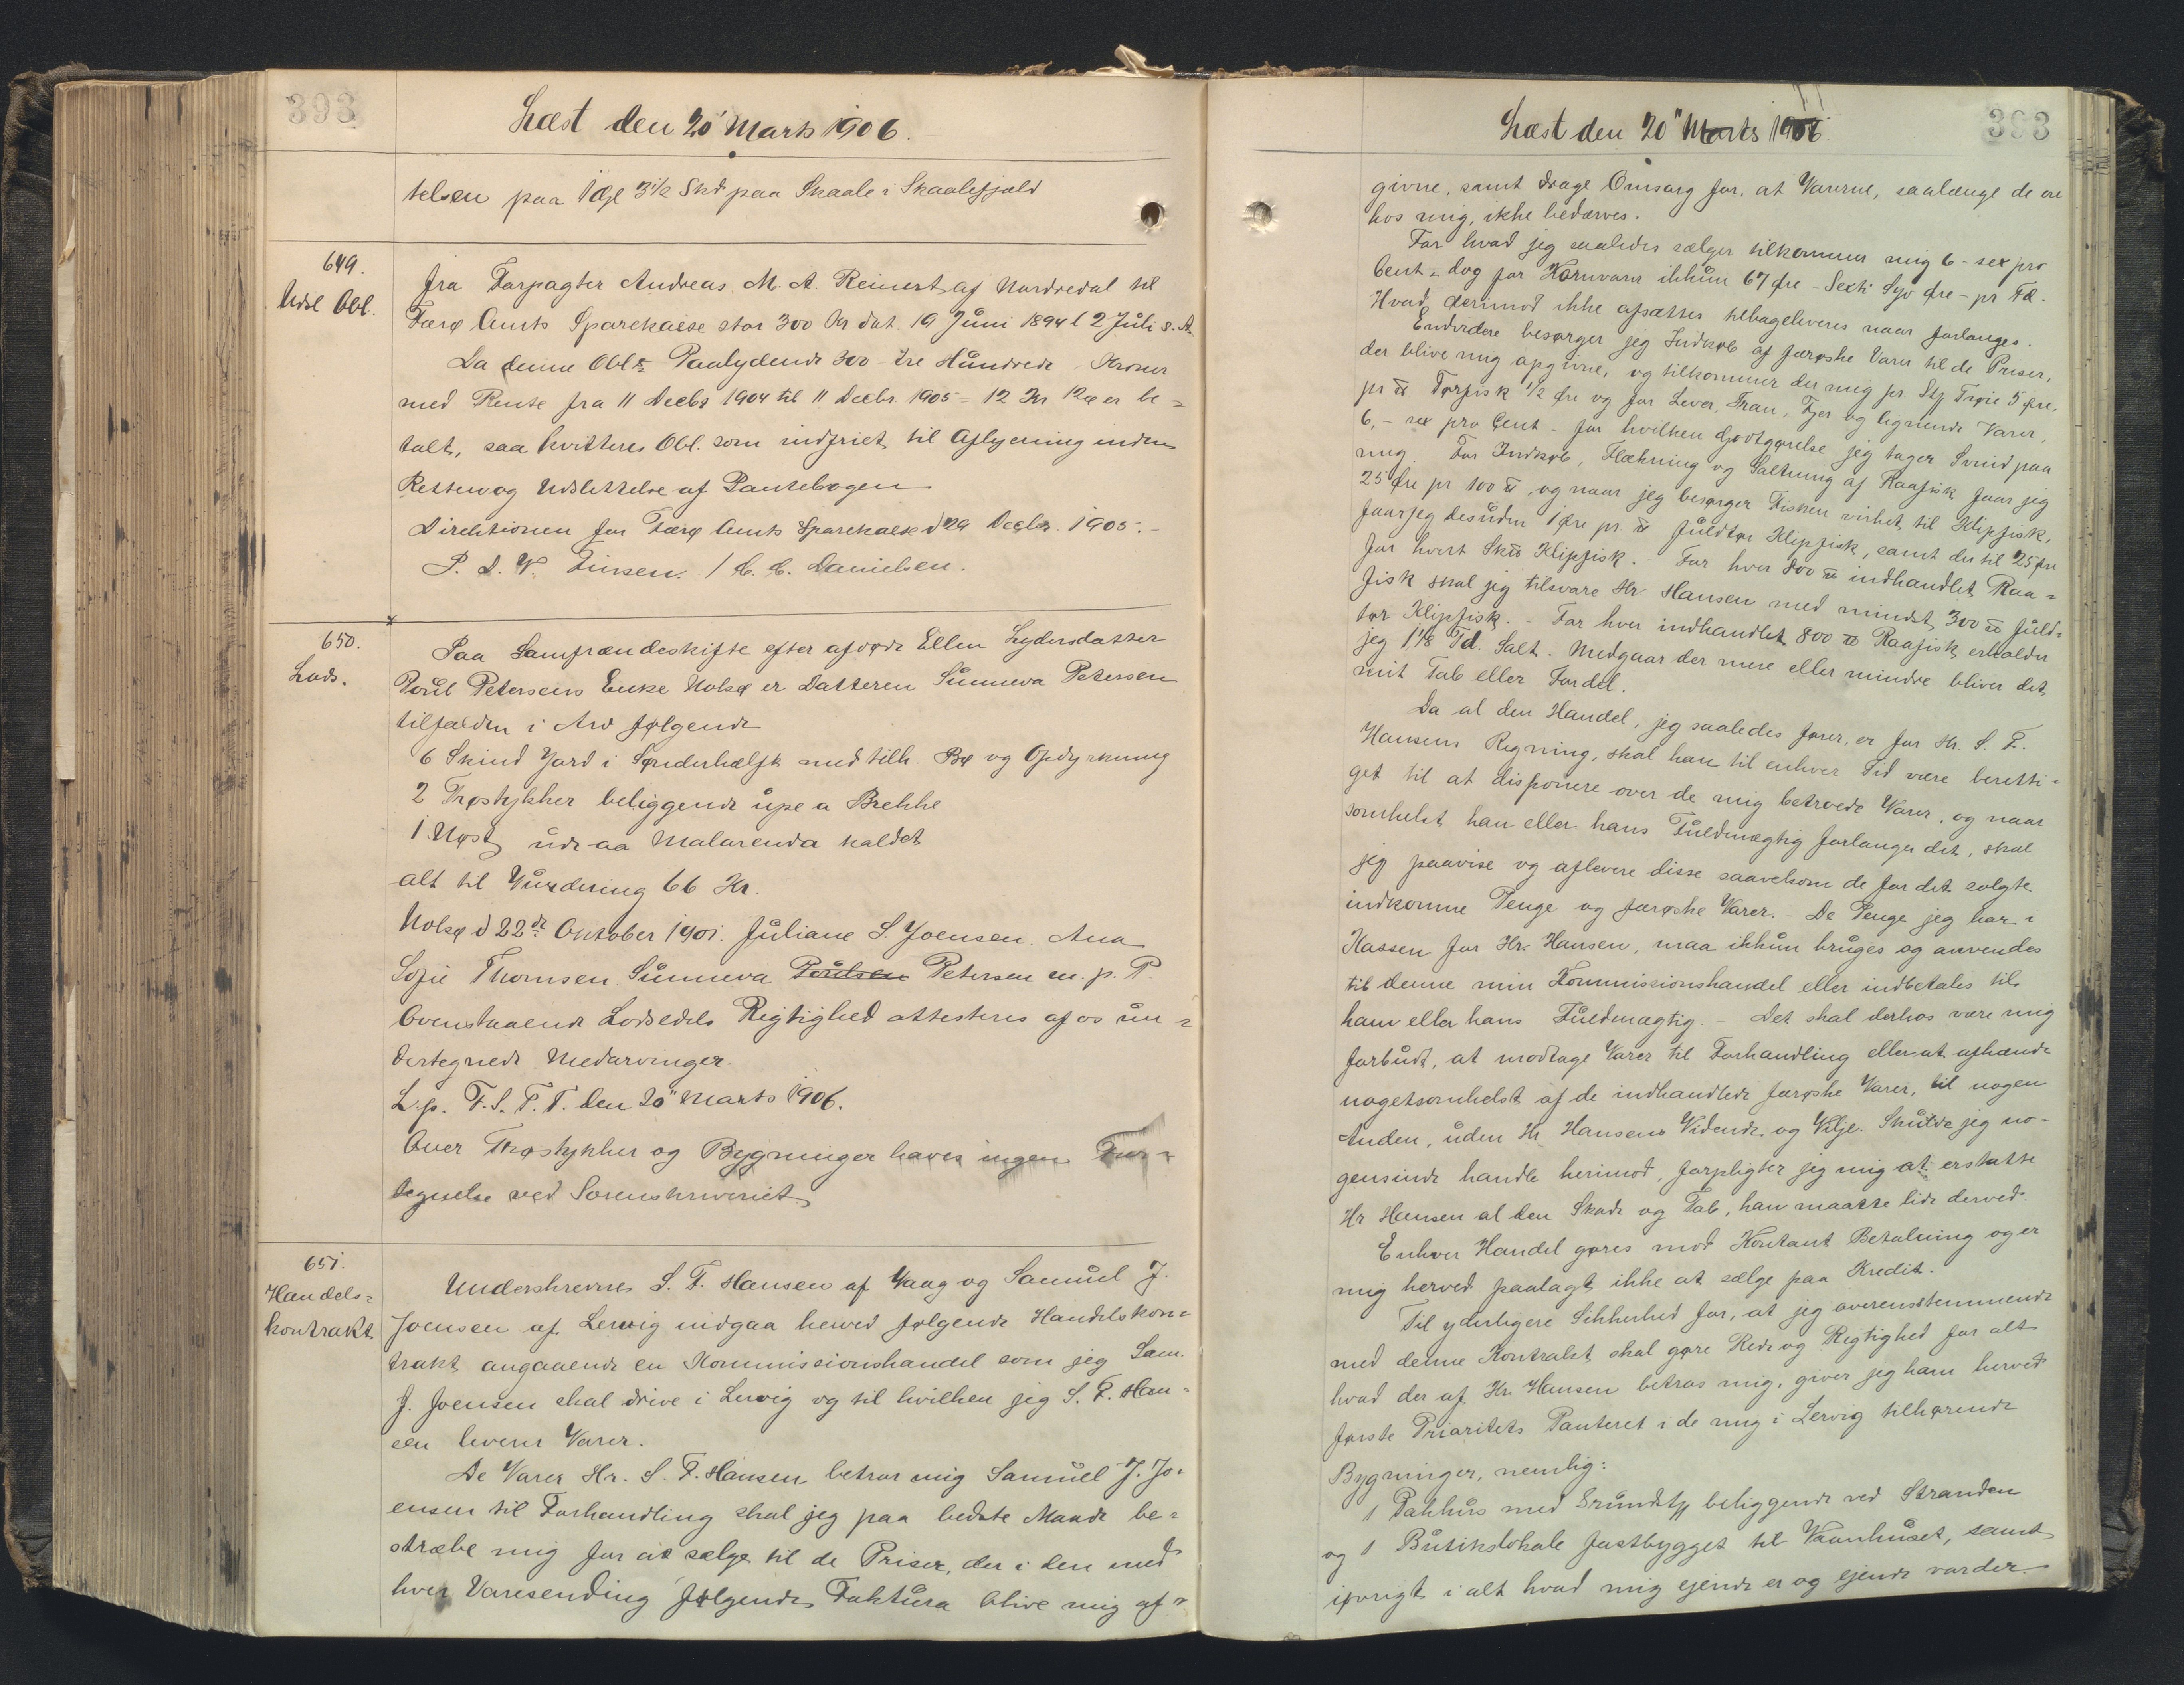 393
Læst den 20' Marts 1906.
telsen paa 1 Gl 3 1/2 Skd paa Skaale i Skaalefjæld
649.
Udsl Obl.
fra Forpagter Andreas M. A. Reinert af Nordredal til
Færø Amts Sparekasse stor 300 Kr dat. 19 Juni 1894 l 2 Juli s. A.
Da denne Obls Paalydende 300 - tre Hundrede - Kroner
med Rente fra 11 Decbr 1904 til 11 Decbr 1905 = 12 Kr 12ø er be=
talt, saa kvitteres Obl. som indfriet til Aflysning inden
Retten og Udslettelse af Pantebogen
Direktionen for Færø Amts Sparekasse d 29 Decbr. 1905.-
P. D. W. Finsen. / C. C. Danielsen.
650.
Lods.
Paa Samfrændeskifte efter afdøde Ellen Lydersdatter
Poul Petersens Enke Nolsø er Datteren Sunneva Petersen
tilfalden i Arv følgende
6 Skind Jord i Sønderhælft med tilh. Bø og Opdyrkning
2 Trøstykker beliggende upe a Brekke
1 Nøst ude aa Malarenda kaldet
alt til Vurdering 66 Kr.
Nolsø d 22de Oktober 1901. Juliane S. Joensen. Ana
Sofie Thomsen. Sunneva Poulsen Petersen m. p. P.
Ovenstaaende Lodsedels Rigtighed attesteres af os un=
dertegnede Medarvinger.
L. p. F. S. T. T. den 20" Marts 1906.
Over Trøstykker og Bygninger haves ingen For=
tegnelse ved Sorenskriveriet
651.
Handels=
kontrakt.
Underskrevne S. F. Hansen af Vaag og Samuel J.
Joensen af Lervig indgaa herved følgende Handelskon=
trakt angaaende en Kommissionshandel som jeg Sam.
J. Joensen skal drive i Lervig og til hvilken jeg S. F. Han=
sen leverer Varer.
De Varer Hr. S. F. Hansen betror mig Samuel J. Jo=
ensen til Forhandling skal jeg paa bedste Maade be=
stræbe mig for at sælge til de Priser, der i den med
hver Varesending følgende Faktura blive mig af=
Læst den 20" Marts 1906.
393
givne, samt drage Omsorg for, at Varerne, saalænge de ere
hos mig, ikke bedærves.
For hvad jeg saaledes sælger tilkommer mig 6 - sex pro
Cent - dog for Kornvarer ikkun 67 Øre - Sexti Syv Øre - pr Td.
Hvad derimod ikke afsættes tilbageleveres naar forlanges.
Endvidere besørger jeg Indkøb af færøske Varer til de Priser,
der blive mig opgivne, og tilkommer der mig pr. Stk Trøie 5 Øre,
pr ℔ Tørfisk 1/2 Øre og for Lever, Tran, Fjer og lignende Varer,
6, - sex pro Cent - for hvilken Godtgørelse jeg tager Svind paa
mig. For Indkøb, Flækning og Saltning af Raafisk faar jeg
25 Øre pr 100 ℔, og naar jeg besørger Fisken virket til Klipfisk,
faar jeg desuden 1 Øre pr. ℔ fuldtør Klipfisk, samt der til 25 Øre
for hvert Sk℔ Klipfisk. - For hver 800 ℔ indhandlet Raa=
fisk skal jeg tilsvare Hr. Hansen med mindst 300 ℔ fuld=
tør Klipfisk. - For hver indhandlet 800 ℔ Raafisk erholder
jeg 1 1/8 Td. Salt. Medgaar der mere eller mindre bliver det
mit Tab eller Fordel.
Da al den Handel, jeg saaledes fører, er for Hr. S. F.
Hansens Regning, skal han til enhver Tid være beretti=
get til at disponere over de mig betroede Varer, og naar
somhelst han eller hans Fuldmægtig forlanger det, skal
jeg paavise og aflevere disse saavelsom de for det solgte
indkomne Penge og færøske Varer. - De Penge jeg har i
Kassen for Hr. Hansen, maa ikkun bruges og anvendes
til denne min Kommissionshandel eller indbetales til
ham eller hans Fuldmægtig. - Det skal derhos være mig
forbudt, at modtage Varer til Forhandling eller at afhænde
nogetsomhelst af de indhandlede færøske Varer, til nogen
Anden, uden Hr. Hansens Vidende og Vilje. Skulde jeg no-
gensinde handle herimod, forpligter jeg mig at erstatte
Hr Hansen al den Skade og Tab, han maatte lide derved.
Enhver Handel gøres mod Kontant Betalning og er
mig herved paalagt ikke at sælge paa Kredit.
Til yderligere Sikkerhed for, at jeg overensstemmende
med denne Kontrakt skal gøre Rede og Rigtighed for alt
hvad der af Hr. Hansen betros mig, giver jeg ham herved
første Prioritets Panteret i de mig i Lervig tilhørende
Bygninger, nemlig:
1 Pakhus med Grundst. beliggende ved Stranden
og 1 Butikslokale fastbygget til Vaanhuset, samt
iøvrigt i alt hvad mig ejende er og ejende vorder